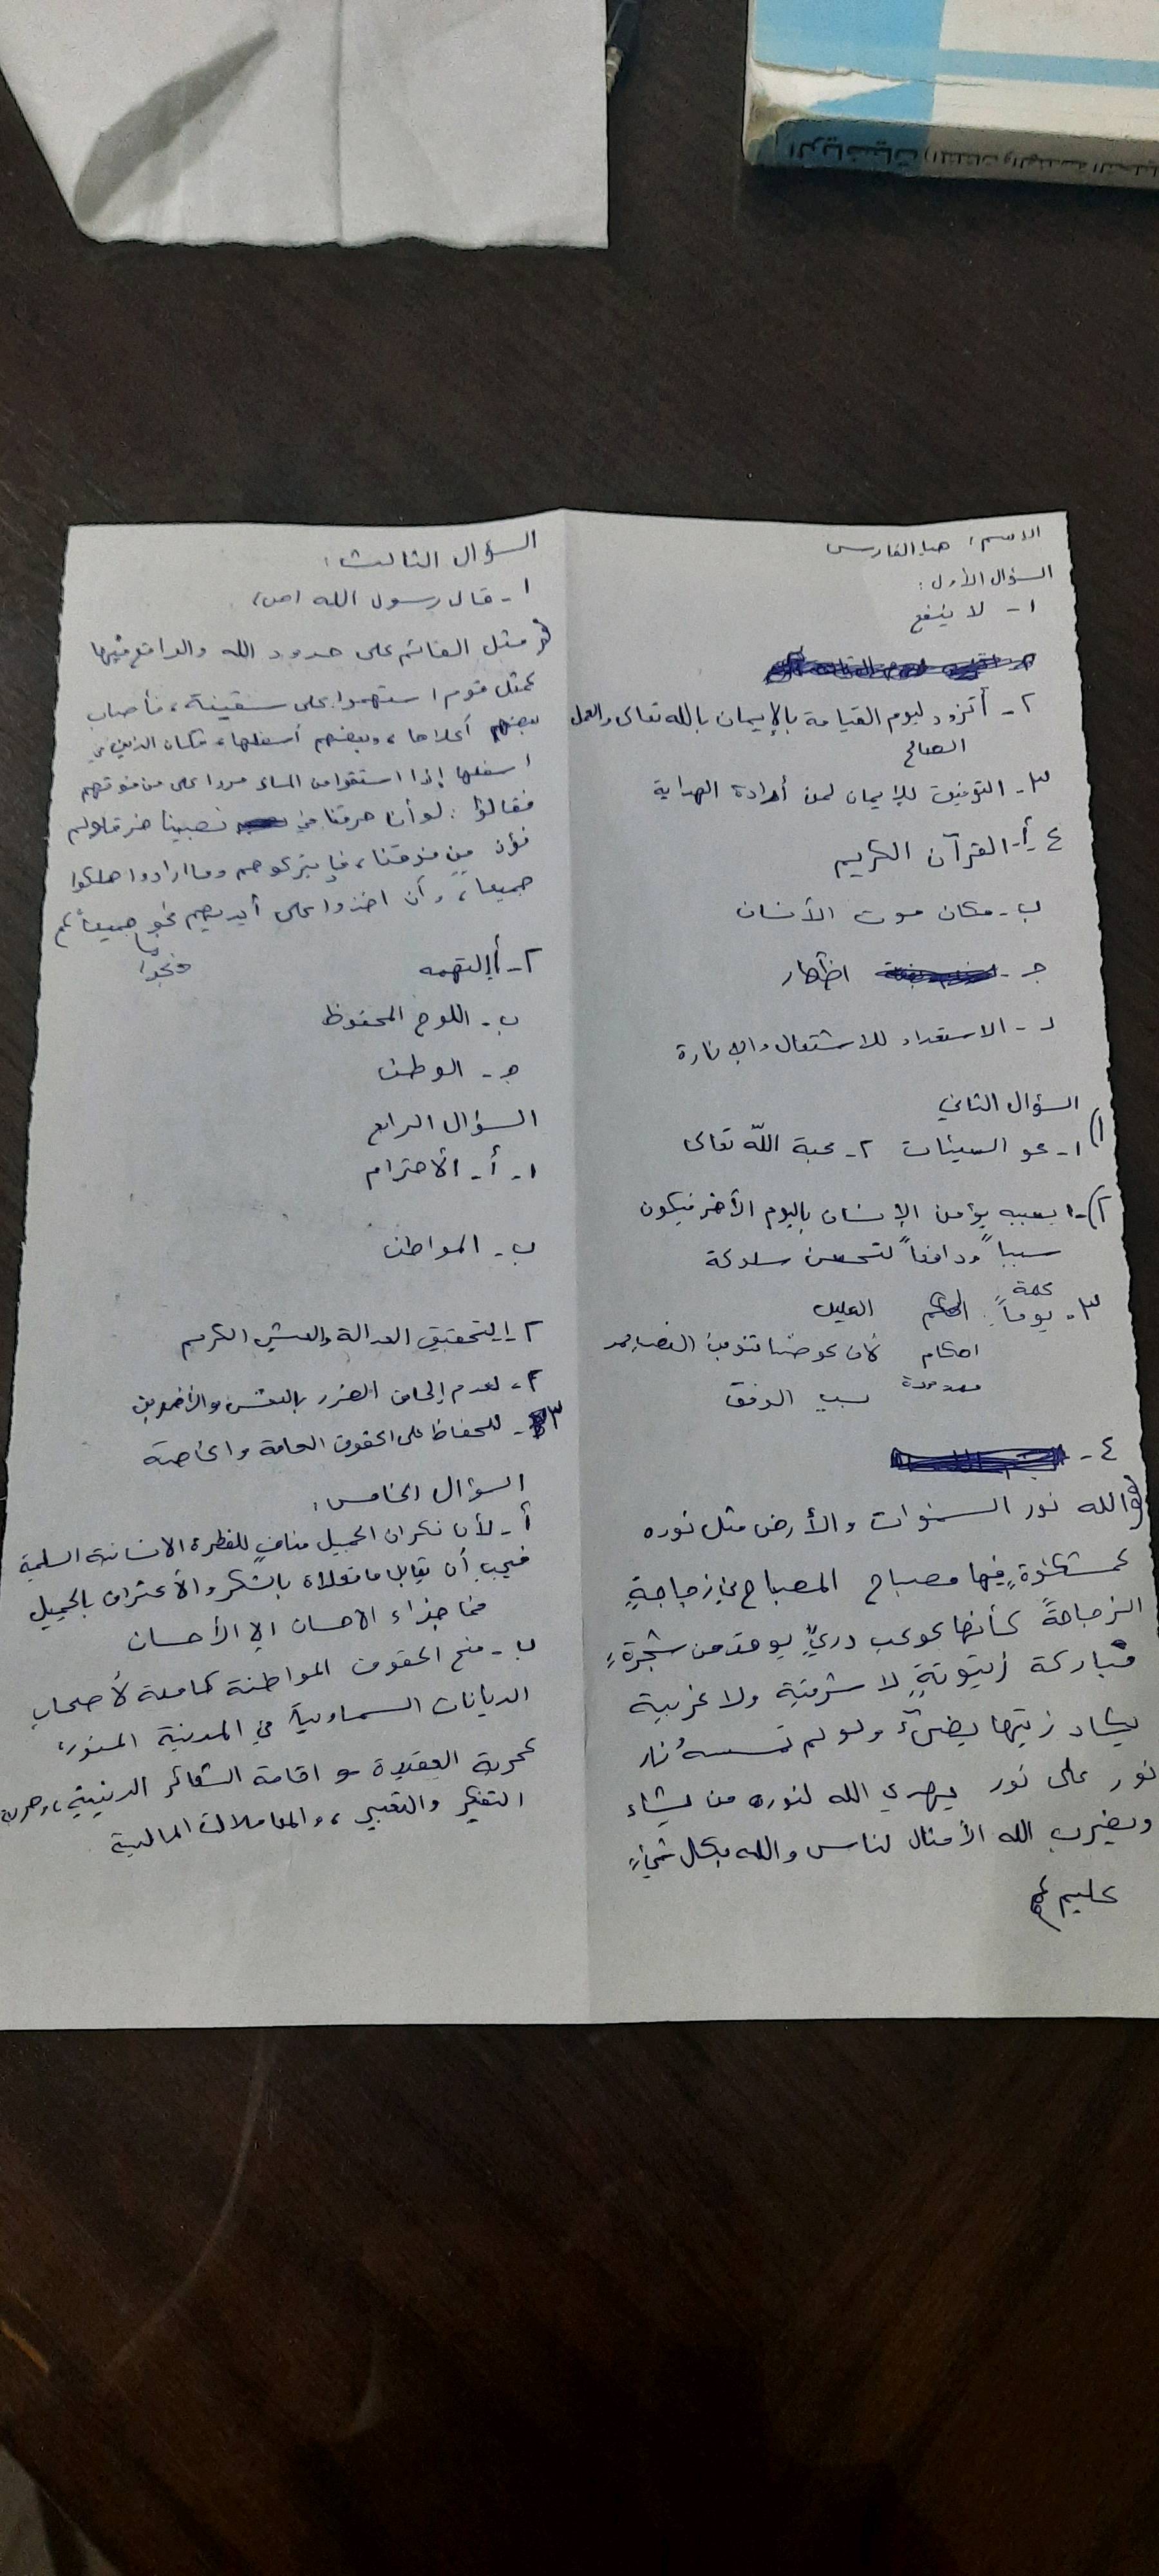 الرياضيات
الاسم: هبا الفارس
السؤال الأول:
١- لا ينفع
٢- أتزود ليوم القيامة بالإيمان بالله تعالى والعمل
الصالح
٣- التوفيق للإيمان لمن أرادة الهداية
٤- أ- القرآن الكريم
ب- مكان موت الأنسان
ج- اظهار
د- الاستعداد للاشتعال والإنارة
السؤال الثاني
١) ١- محو السيئات ٢- محبة الله تعالى
٢)-١ بسببه يؤمن الإنسان باليوم الأخر فيكون
سبباً ودافعاً لتحسن سلوكه
٣- يوماً: الحكم العليل
احكام كان عوضا تنوين
معدودة سبب الوقف
٤-
﴿الله نور السموات والأرض مثل نوره
كمشكوٰة فيها مصباح المصباح في زجاجةٍ
الزجاجةُ كأنها كوكب دريٌ يوقد من شجرةٍ
مباركة زيتونةٍ لا شرقية ولا غربية
يكاد زيتها يضيءُ ولو لم تمسسهُ نار
نور على نور يهدي الله لنوره من يشاء
ويضرب الله الأمثال لناس والله بكل شيءٍ
عليم﴾
السؤال الثالث:
١- قال رسول الله (ص)
﴿مثل القائم على حدود الله والواقع فيها
كمثل قوم استهموا على سفينة، فأصاب
بعضهم أعلاها، وبعضهم أسفلها، فكان الذين في
اسفلها إذا استقوا من الماء مروا على من فوقهم
فقالوا: لو أنا خرقنا في نصيبنا خرقا ولم
نؤذ من فوقنا، فإن يتركوهم وما ارادوا هلكوا
جميعا، وأن اخذوا على أيديهم نجو جميعاً﴾
ونجوا
٢- أ التهمه
ب- اللوح المحفوظ
ج- الوطن
السؤال الرابع
١- أ- الأحترام
ب- المواطن
٢- ١- لتحقيق العدالة والعيش الكريم
٢- لعدم إلحاق الضرر بالنفس والأخرين
٣- للحفاظ على الحقوق العامة والخاصة
السؤال الخامس:
أ- لأن نكران الجميل منافٍ للفطرة الانسانية السلمية
فيجب أن يقابل ما فعلاه بالشكر والأعتراف بالجميل
فما جزاء الاحسان إلا الأحسان
ب- منح الحقوق المواطنة كاملة لأصحاب
الديانات السماوية في المدينة المنورة،
كحرية العقيدة و اقامة الشعائر الدينية، وحرية
التفكير والتعبير، والمعاملات المالية